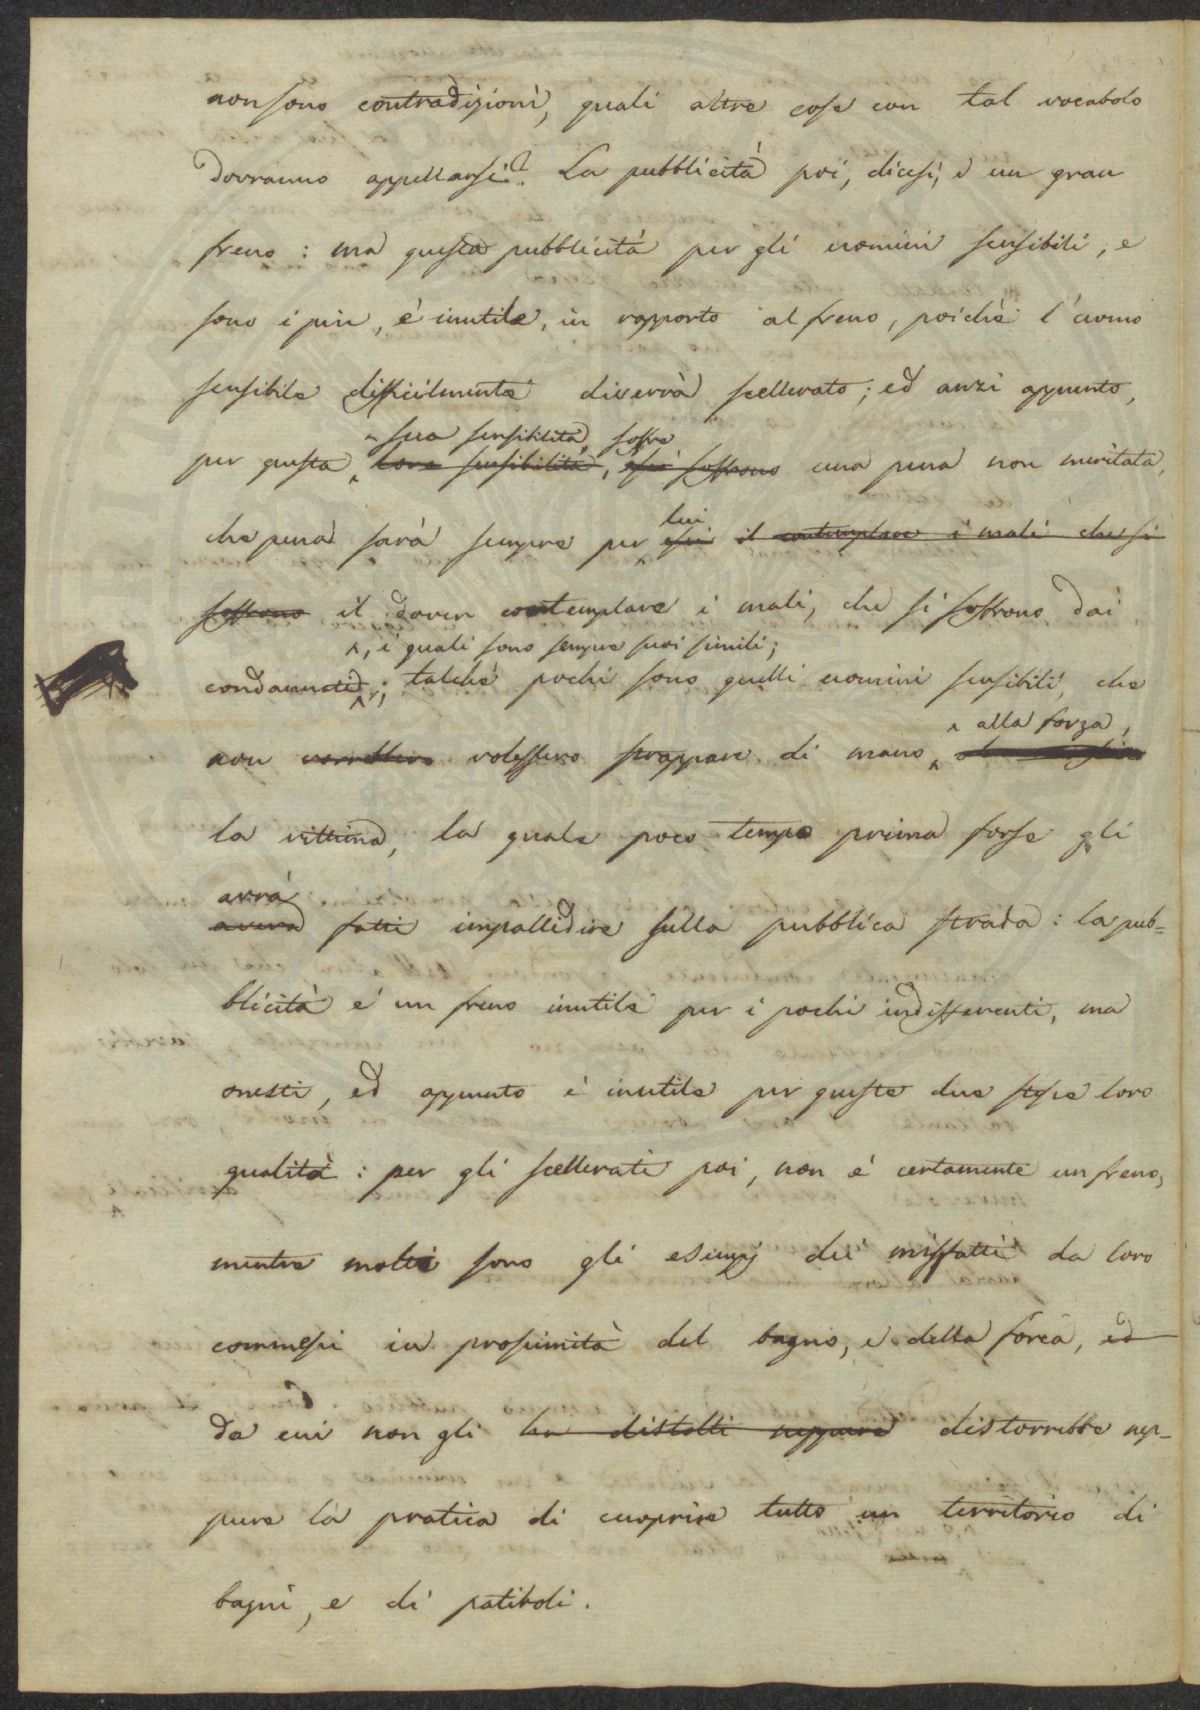 non sono contradizioni, quali altre cose con tal vocabolo
dovranno appellarsi? La pubblicità poi, dicesi, è un gran
freno: ma questa pubblicità per gli uomini sensibili, e
sono i più, è inutile, in rapporto al freno, poichè l'uomo
sensibile difficilmente diverrà scellerato; ed anzi appunto,
sua sensibilità, soffre
per questa loro sensibilità, essi soffrono una pena non meritata,
lui
che pena sarà sempre per essi il contemplare i mali che si
soffrono il dover contemplare i mali, che si soffrono dai
, i quali sono sempre suoi simili;
condannati; talchè pochi sono quelli uomini sensibili, che
alla forza,
non vorrebbero volessero strappare di mano
la vittima, la quale poco tempo prima forse gli
avrà
aveva fatti impallidire sulla pubblica strada: la pub=
blicità è un freno inutile per i pochi indifferenti, ma
onesti, ed appunto è inutile per queste due stesse loro
qualità: per gli scellerati poi, non è certamente un freno,
mentre molti sono gli esempj dei misfatti da loro
commessi in prossimità del bagno, e della forca, ed
da cui non gli ha distolti neppure distorrebbe nep=
pure la pratica di cuoprire tutto un territorio di
bagni, e di patiboli.